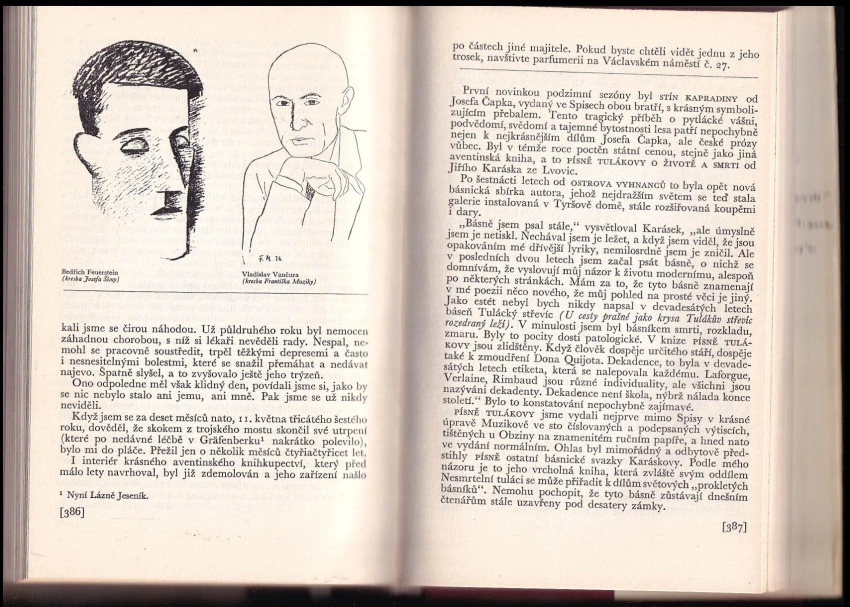 F. M. 26.
Bedřich Feuerstein
(kresba Josefa Šímy)
Vladislav Vančura
(kresba Františka Muziky)
kali jsme se čirou náhodou. Už půldruhého roku byl nemocen
záhadnou chorobou, s níž si lékaři nevěděli rady. Nespal, ne-
mohl se pracovně soustředit, trpěl těžkými depresemi a často
i nesnesitelnými bolestmi, které se snažil přemáhat a nedávat
najevo. Špatně slyšel, a to zvyšovalo ještě jeho trýzeň.
Ono odpoledne měl však klidný den, povídali jsme si, jako by
se nic nebylo stalo ani jemu, ani mně. Pak jsme se už nikdy
neviděli.
Když jsem se za deset měsíců nato, 11. května třicátého šestého
roku, dověděl, že skokem z trojského mostu skončil své utrpení
(které po nedávné léčbě v Gräfenberku¹ nakrátko polevilo),
bylo mi do pláče. Přežil jen o několik měsíců čtyřiačtyřicet let.
I interiér krásného aventinského knihkupectví, který před
málo lety navrhoval, byl již zdemolován a jeho zařízení našlo
¹ Nyní Lázně Jeseník.
[386]
po částech jiné majitele. Pokud byste chtěli vidět jednu z jeho
trosek, navštivte parfumerii na Václavském náměstí č. 27.
První novinkou podzimní sezóny byl STÍN KAPRADINY od
Josefa Čapka, vydaný ve Spisech obou bratří, s krásným symboli-
zujícím přebalem. Tento tragický příběh o pytlácké vášni,
podvědomí, svědomí a tajemné bytostnosti lesa patří nepochybně
nejen k nejkrásnějším dílům Josefa Čapka, ale české prózy
vůbec. Byl v témže roce poctěn státní cenou, stejně jako jiná
aventinská kniha, a to PÍSNĚ TULÁKOVY O ŽIVOTĚ A SMRTI od
Jiřího Karáska ze Lvovic.
Po šestnácti letech od OSTROVA VYHNANCŮ to byla opět nová
básnická sbírka autora, jehož nejdražším světem se teď stala
galerie instalovaná v Tyršově domě, stále rozšiřovaná koupěmi
i dary.
„Básně jsem psal stále,“ vysvětloval Karásek, „ale úmyslně
jsem je netiskl. Nechával jsem je ležet, a když jsem viděl, že jsou
opakováním mé dřívější lyriky, nemilosrdně jsem je zničil. Ale
v posledních dvou letech jsem začal psát básně, o nichž se
domnívám, že vyslovují můj názor k životu modernímu, alespoň
po některých stránkách. Mám za to, že tyto básně znamenají
v mé poezii něco nového, že můj pohled na prosté věci je jiný.
Jako estét nebyl bych nikdy napsal v devadesátých letech
báseň Tulácký střevíc (U cesty prašné jako krysa Tulákův střevíc
rozedraný leží). V minulosti jsem byl básníkem smrti, rozkladu,
zmaru. Byly to pocity dosti patologické. V knize PÍSNĚ TULÁ-
KOVY jsou zlidštěny. Když člověk dospěje určitého stáří, dospěje
také k zmoudření Dona Quijota. Dekadence, to byla v devade-
sátých letech etiketa, která se nalepovala každému. Laforgue,
Verlaine, Rimbaud jsou různé individuality, ale všichni jsou
nazýváni dekadenty. Dekadence není škola, nýbrž nálada konce
století.“ Bylo to konstatování nepochybně zajímavé.
PÍSNĚ TULÁKOVY jsme vydali nejprve mimo Spisy v krásné
úpravě Muzikově ve sto číslovaných a podepsaných výtiscích,
tištěných u Obziny na znamenitém ručním papíře, a hned nato
ve vydání normálním. Ohlas byl mimořádný a odbytově před-
stihly PÍSNĚ ostatní básnické svazky Karáskovy. Podle mého
názoru je to jeho vrcholná kniha, která zvláště svým oddílem
Nesmrtelní tuláci se může přiřadit k dílům světových „prokletých
básníků“. Nemohu pochopit, že tyto básně zůstávají dnešním
čtenářům stále uzavřeny pod desatery zámky.
[387]